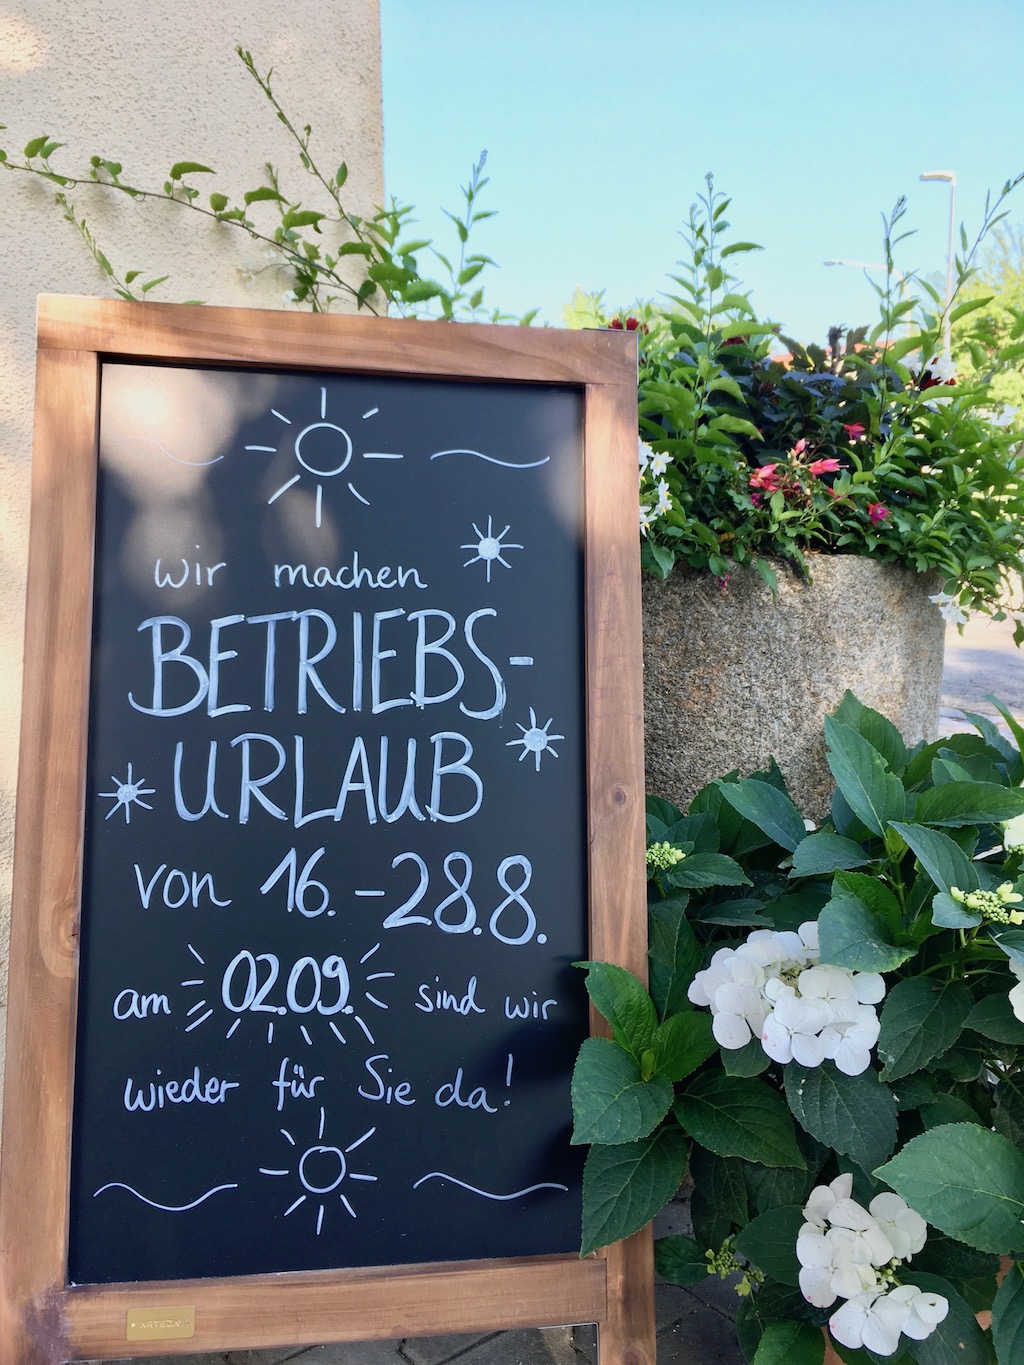 wir machen
BETRIEBS-
URLAUB
von 16. - 28.8.
am 02.09. sind wir
wieder für Sie da!
ARTEZA